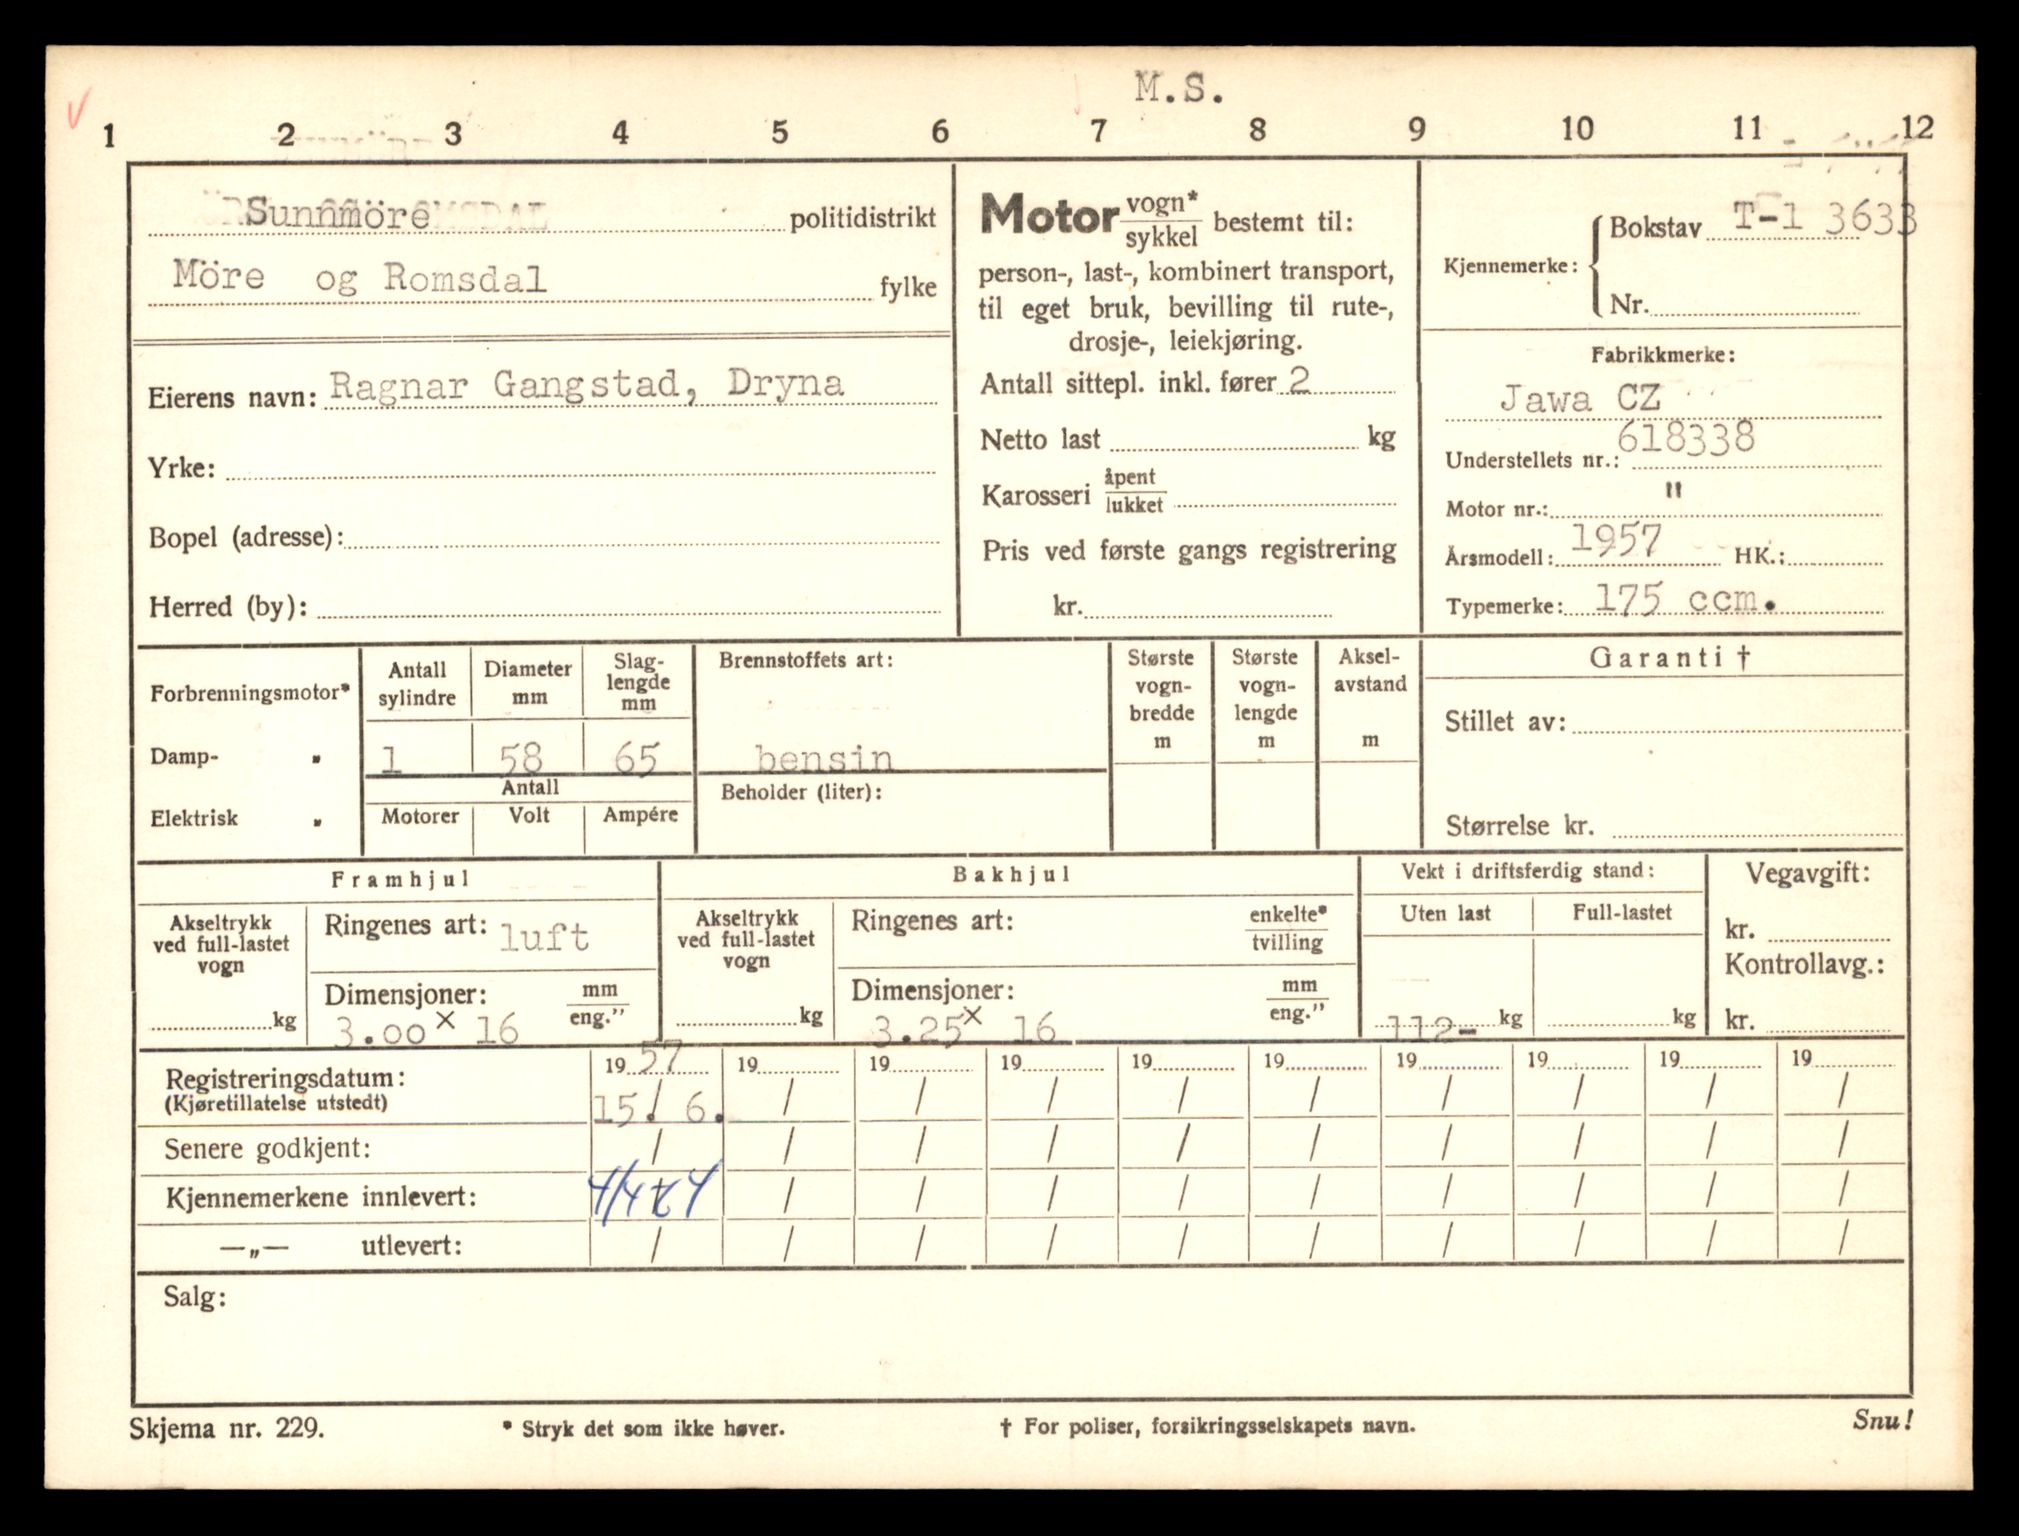 M.S.
1 2 3 4 5 6 7 8 9 10 11 12
Sunnmöre politidistrikt
Möre og Romsdal fylke
Eierens navn: Ragnar Gangstad, Dryna
Yrke:
Bopel (adresse):
Herred (by):
Motor vogn* sykkel bestemt til:
person-, last-, kombinert transport,
til eget bruk, bevilling til rute-,
drosje-, leiekjøring.
Antall sittepl. inkl. fører 2
Netto last kg
Karosseri åpent lukket
Pris ved første gangs registrering
kr.
Kjennemerke: Bokstav T-1 3633
Nr.
Fabrikkmerke:
Jawa CZ
Understellets nr.: 618338
Motor nr.: "
Årsmodell: 1957 HK.:
Typemerke: 175 ccm.
Forbrenningsmotor*
Damp- „
Elektrisk „
Antall sylindre
Diameter mm
Slag-lengde mm
1 58 65
Antall
Motorer Volt Ampére
Brennstoffets art:
bensin
Beholder (liter):
Største vogn-bredde m
Største vogn-lengde m
Aksel-avstand m
Garanti †
Stillet av:
Størrelse kr.
Framhjul
Akseltrykk ved full-lastet vogn
kg
Ringenes art: luft
Dimensjoner: mm eng."
3.00 x 16
Bakhjul
Akseltrykk ved full-lastet vogn
kg
Ringenes art: enkelte* tvilling
Dimensjoner: mm eng."
3.25 x 16
Vekt i driftsferdig stand:
Uten last Full-lastet
112- kg kg
Vegavgift:
kr.
Kontrollavg.:
kr.
Registreringsdatum: 19 57 19 19 19 19 19 19 19 19 19
(Kjøretillatelse utstedt) 15. / 6. / / / / / / / / /
Senere godkjent: / / / / / / / / / /
Kjennemerkene innlevert: / / / / / / / / /
—„— utlevert: / / / / / / / / / /
Salg:
Skjema nr. 229. * Stryk det som ikke høver. † For poliser, forsikringsselskapets navn. Snu!